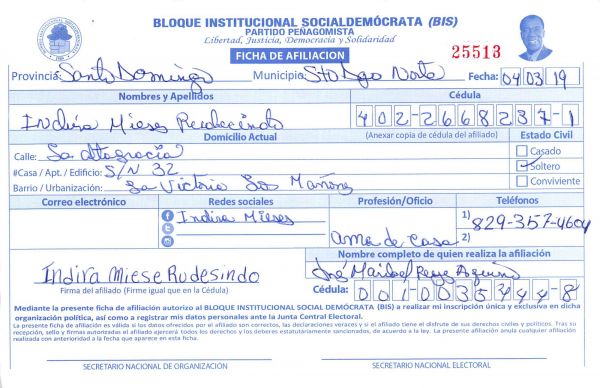 BLOQUE INSTITUCIONAL SOCIALDEMÓCRATA (BIS)
PARTIDO PEÑAGOMISTA
Libertad, Justicia, Democracia y Solidaridad
FICHA DE AFILIACION
25513
Provincia: Santo Domingo Municipio: Sto Dgo Norte Fecha: 04 03 19
Nombres y Apellidos Cédula
Indira Mieses 402-2668237-1
Domicilio Actual (Anexar copia de cédula del afiliado) Estado Civil
Calle: La altagracia Casado
#Casa / Apt. / Edificio: S/N 32 Soltero
Barrio / Urbanización: La Victoria Los Mañones Conviviente
Correo electrónico Redes sociales Profesión/Oficio Teléfonos
Indira Mieses ama de Casa 1) 829-357-4604
2)
Nombre completo de quien realiza la afiliación
Indira Miese Rudesindo José
Firma del afiliado (Firme igual que en la Cédula) Cédula: 001-0035444-8
Mediante la presente ficha de afiliación autorizo al BLOQUE INSTITUCIONAL SOCIAL DEMÓCRATA (BIS) a realizar mi inscripción única y exclusiva en dicha
organización política, así como a registrar mis datos personales ante la Junta Central Electoral.
La presente ficha de afiliación es válida si los datos ofrecidos por el afiliado son correctos, las declaraciones veraces y si el afiliado tiene el disfrute de sus derechos civiles y políticos. Tras su
recepción, sello y firmas autorizadas el afiliado ejercerá todos los derechos y los deberes estatutariamente sancionados, de acuerdo a la ley. La presente afiliación anula cualquier afiliación
realizada con anterioridad a la fecha que aparece en esta ficha.
SECRETARIO NACIONAL DE ORGANIZACIÓN SECRETARIO NACIONAL ELECTORAL